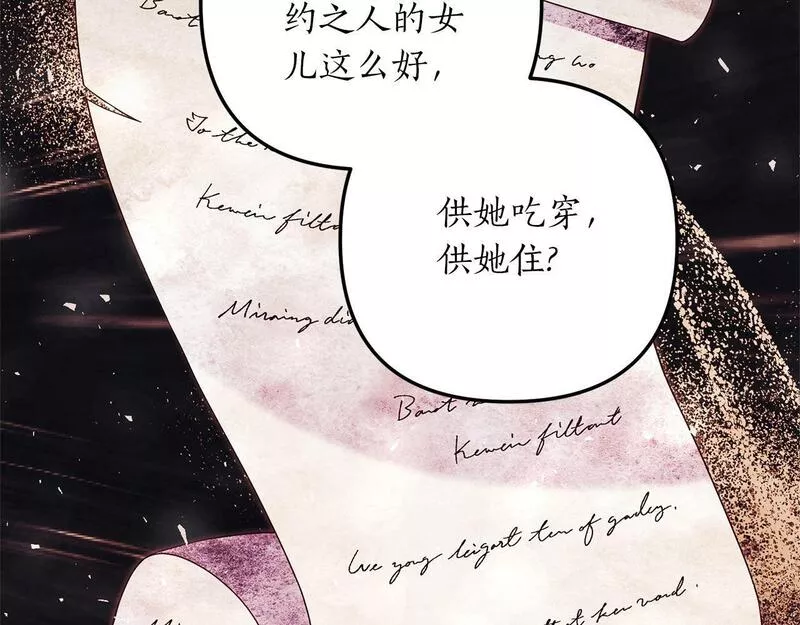 约之人的女
儿这么好，
供她吃穿，
供她住？
To the
Kewein filtont
Miraing dia
Barot
Kewein filtont
We yong leigart ten of gadey.
ken word.